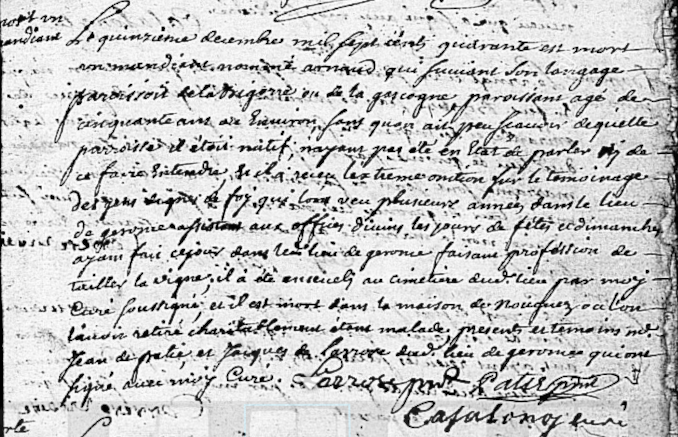 mort d'un
mandiant
Le quinzième decembre mil sept cents quarante est mort
un mandiant nommé arnaud qui suivant son langage
paroissoit de la bigorre ou de la gascogne paroissant agé de
cinquante ans ou environ, sans quon ait peu scavoir de quelle
parroisse il étoit natif, nayant pas eté en Etat de parler ny de
ce faire Entendre, et il a receu lextreme onction sur le temoinage
des gens dignes de foy que lont veu plusieurs années dans le lieu
de geronce assistant aux offices divins les jours de fêtes et dimanches
ayant fait cejour dans led. lieu de geronce faisant profession de
tailler la vigne, il a été enseveli au cimetière dud. lieu par moy
Curé soussigné, et il est mort dans la maison de Nouquez ou l'on
lavoit retiré charitablement etant malade presents et temoins mr.
Jean de palie et Jacques de Larrose dud. lieu de geronce qui ont
signé avec moy Curé. Larrose pnt. Palie pnt
Casalong curé